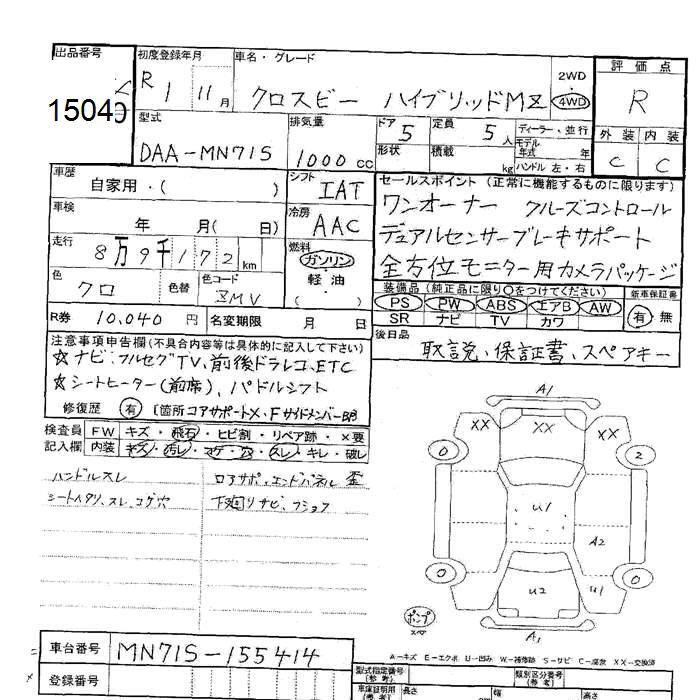 出品番号 初度登録年月 車名・グレード 2WD 評価点
15040 R1 11月 クロスビー ハイブリッドMZ 4WD R
型式 排気量 ドア 5 定員 5人 ディーラー・並行 外装 内装
DAA-MN71S 1000cc 形状 積載 kg モデル年式 年 ハンドル 左・右 C C
車歴 シフト IAT セールスポイント (正常に機能するものに限ります)
自家用・( ) ワンオーナー クルーズコントロール
車検 年 月( 日) 冷房 AAC デュアルセンサーブレーキサポート
走行 8万9千172km 燃料 ガソリン・軽油・( ) 全方位モニター用カメラパッケージ
色 クロ 色替 色コード ZMV 装備品 (純正品に限り○をつけてください) 新車保証書
PS PW ABS エアB AW 有・無
R券 10,040円 名変期限 月 日 SR ナビ TV カワ
注意事項申告欄(不具合内容等は具体的に記入して下さい) 後日品 取説、保証書、スペアキー
☆ナビ、フルセグTV、前後ドラレコ、ETC
☆シートヒーター(前席)、パドルシフト
修復歴 有 [箇所 コアサポートX、Fサイドメンバー
検査員記入欄 FW キズ・飛石・ヒビ割・リペア跡・×要
内装 キズ・汚レ・コゲ・穴・スレ・キレ・破レ
ハンドルスレ ロアサポ、エンドパネル歪
シートヘタリ、スレ、コゲ穴 下廻りサビ、フショク
A1
XX XX XX
0 2
U1
A2
0 U2 U1 0
ポンプ
スペア A1
A-キズ E-エクボ U-凹み W-補修跡 S-サビ C-腐食 XX-交換済
車台番号 MN71S-155414 型式指定番号(参考) 類別区分番号(参考)
登録番号 車庫証明用(参考) 長さ 幅 高さ